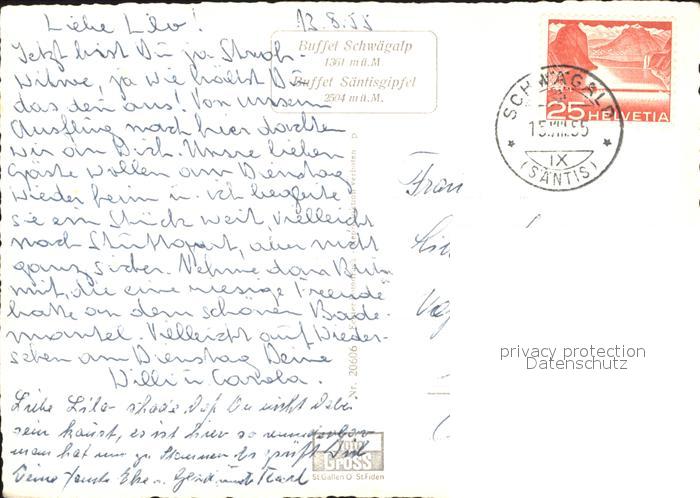 Liebe Lilo!
13.8.55
Jetzt bist Du ja Stroh-
witwe, ja wie hältst Du
das den aus! Von unserm
Ausflug nach hier dachten
wir an Dich. Unsre lieben
Gäste wollen am Dienstag
wieder heim u. ich begleite
sie ein Stück weit, vielleicht
nach Stuttgart, aber nicht
ganz sicher. Nehme dann
mit, die eine riesige Freude
hatte an dem schönen Bade-
mantel. Vielleicht auf Wieder-
sehen am Dienstag Deine
Willi u. Carola.
Liebe Lilo schade daß Du nicht dabei
sein kannst, es ist hier so wunderbar
man hat nur zu staunen. Es grüßt Dich
Deine Tante
Buffet Schwägalp
1361 m ü.M
Buffet Säntisgipfel
2504 m ü.M.
25 HELVETIA
SCHWÄGALP
15.VIII.55
IX
(SÄNTIS)
Frau
Nr. 20606
privacy protection
Datenschutz
FOTO
GROSS
St.Gallen O St.Fiden